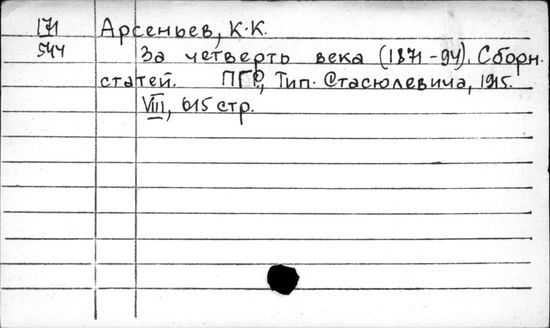 171 Арсеньев, К.К.
544 За четверть века (1871-94). Сборн.
статей. ПГР, Тип. Стасюлевича, 1915.
VIII, 615 стр.